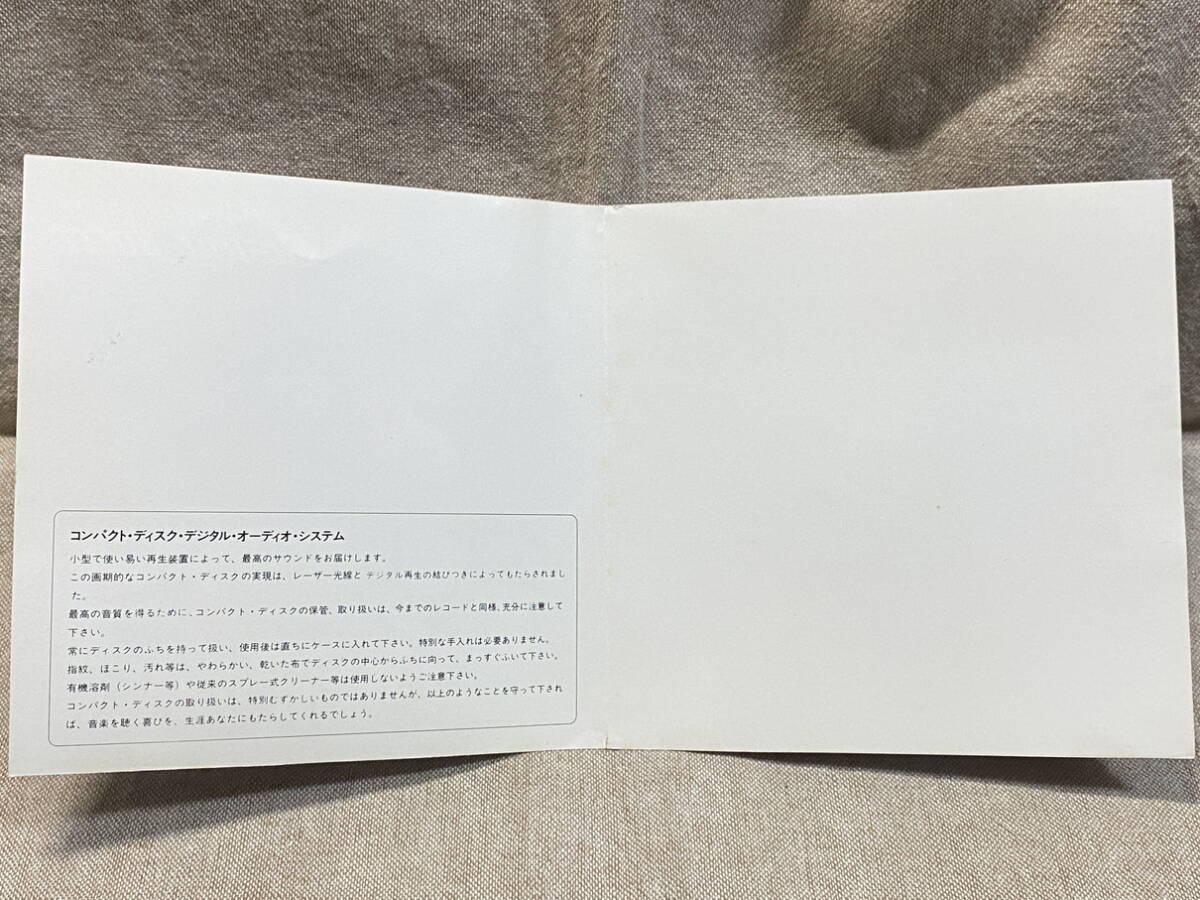 コンパクト・ディスク・デジタル・オーディオ・システム
小型で使い易い再生装置によって、最高のサウンドをお届けします。
この画期的なコンパクト・ディスクの実現は、レーザー光線とデジタル再生の結びつきによってもたらされまし
た。
最高の音質を得るために、コンパクト・ディスクの保管、取り扱いは、今までのレコードと同様、充分に注意して
下さい。
常にディスクのふちを持って扱い、使用後は直ちにケースに入れて下さい。特別な手入れは必要ありません。
指紋、ほこり、汚れ等は、やわらかい、乾いた布でディスクの中心からふちに向って、まっすぐふいて下さい。
有機溶剤（シンナー等）や従来のスプレー式クリーナー等は使用しないようご注意下さい。
コンパクト・ディスクの取り扱いは、特別むずかしいものではありませんが、以上のようなことを守って下され
ば、音楽を聴く喜びを、生涯あなたにもたらしてくれるでしょう。